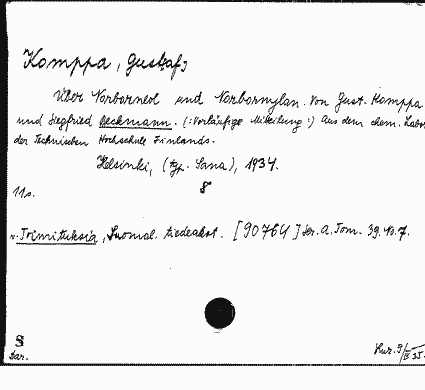 Komppa, Gustaf,
Über Norborneol und Norbornylan. Von Gust. Komppa
und Siegfried Beckmann. (:Vorläufige Mitteilung:) Aus dem chem. Labor
der Technischen Hochschule Finlands.
Helsinki, (typ. Sana), 1934.
8
11 s.
Toimituksia, Suomal. tiedeakat. [90764] Ser. A. Tom. 39. No. 7.
S
Sar.